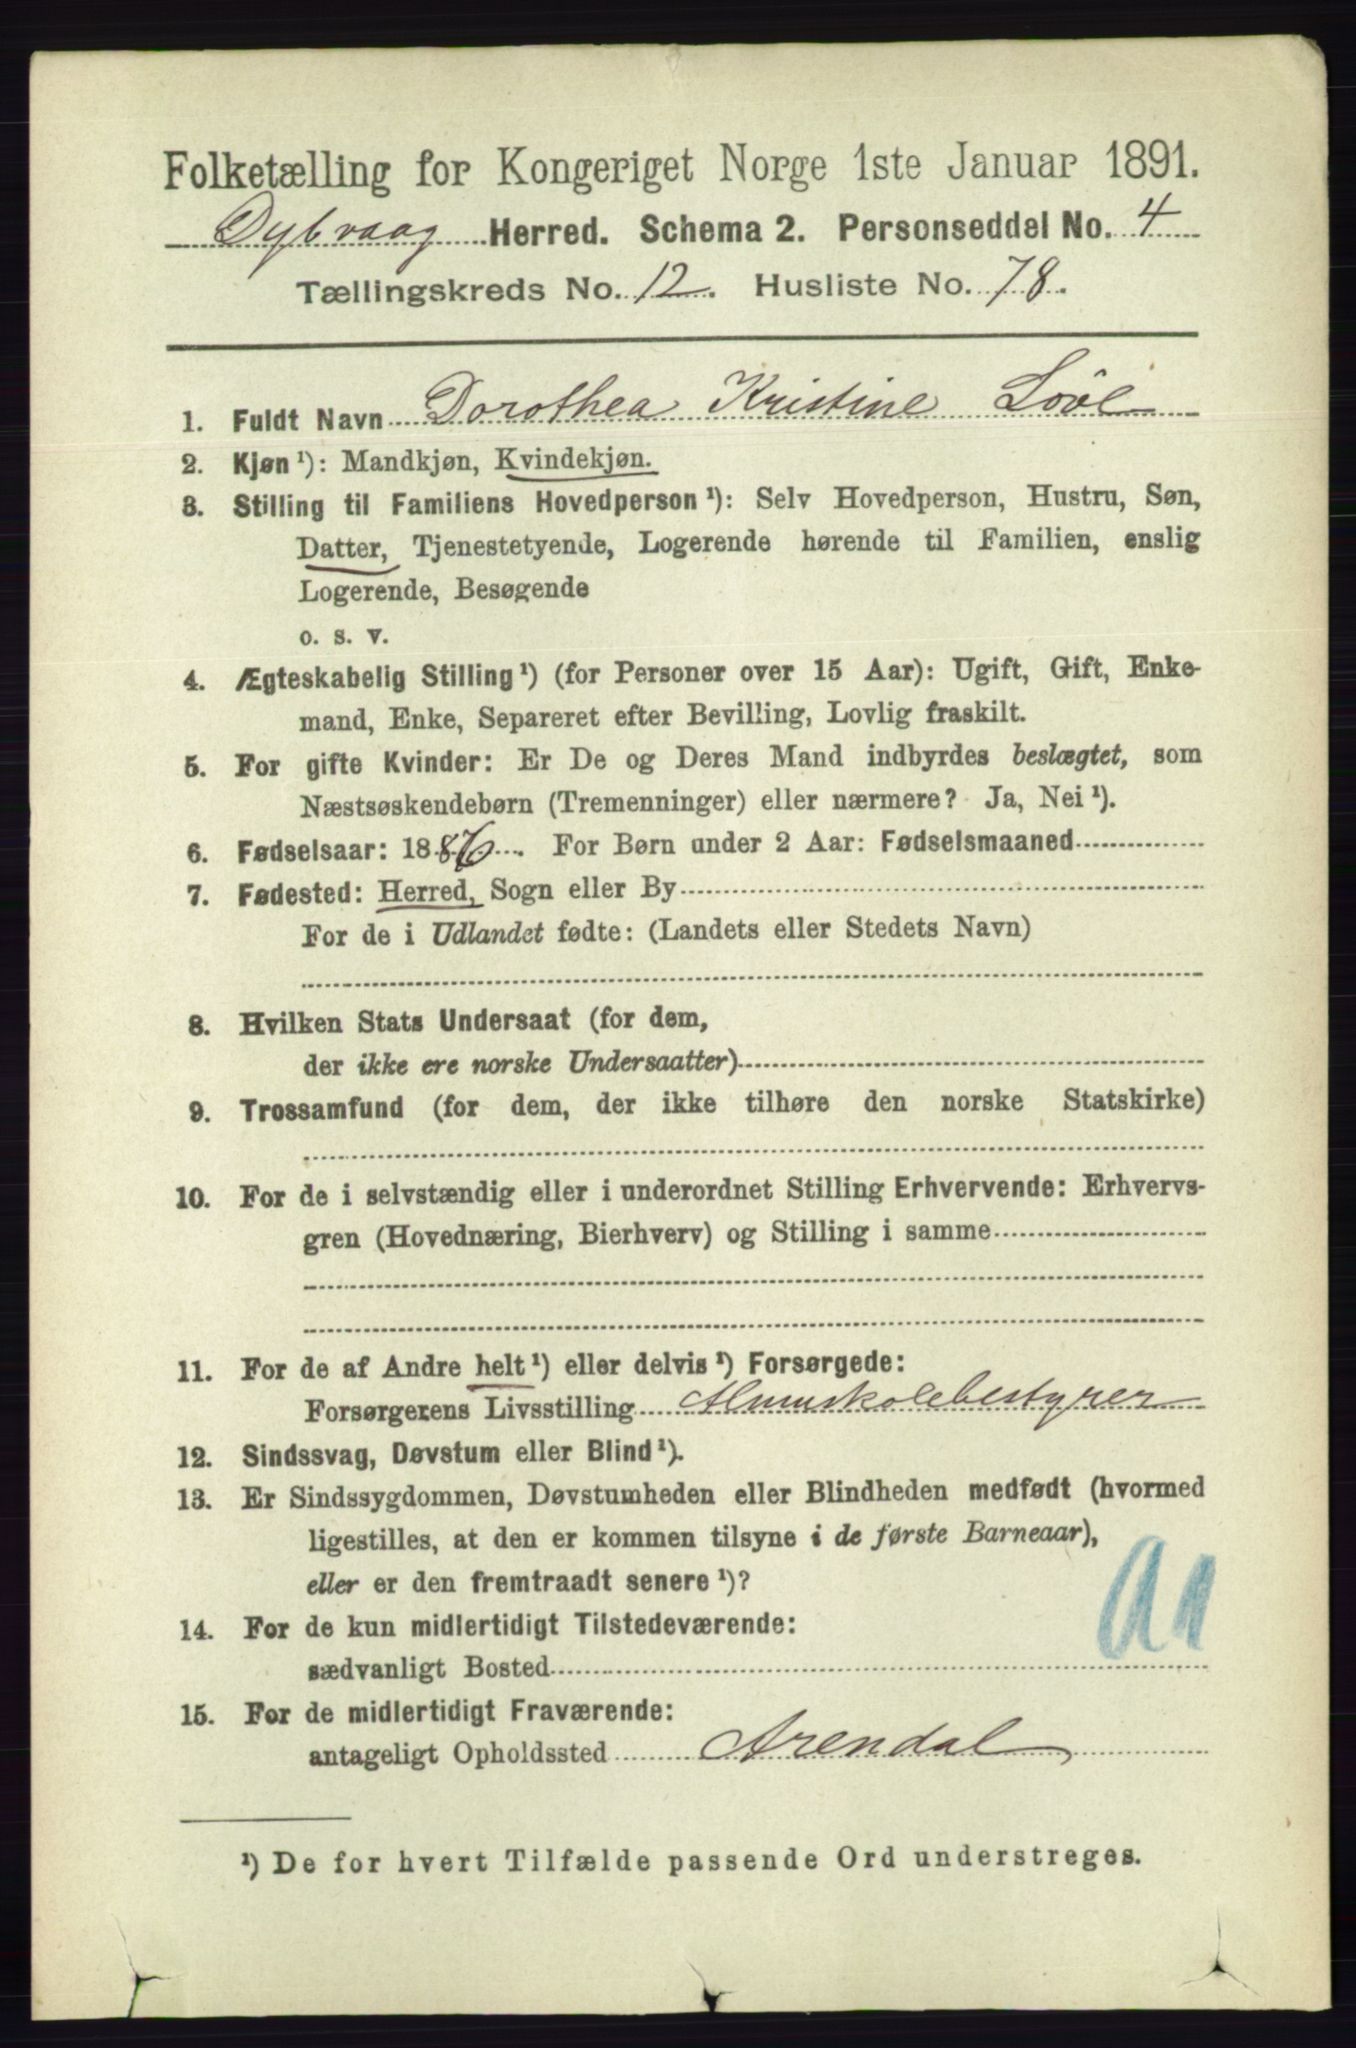 Folketælling for Kongeriget Norge 1ste Januar 1891.
Dybvaag Herred. Schema 2. Personseddel No. 4
Tællingskreds No. 12. Husliste No. 78.
1. Fuldt Navn Dorothea Kristine Löve
2. Kjøn ¹): Mandkjøn, Kvindekjøn.
3. Stilling til Familiens Hovedperson ¹): Selv Hovedperson, Hustru, Søn,
Datter, Tjenestetyende, Logerende hørende til Familien, enslig
Logerende, Besøgende
o. s. v.
4. Ægteskabelig Stilling ¹) (for Personer over 15 Aar): Ugift, Gift, Enke-
mand, Enke, Separeret efter Bevilling, Lovlig fraskilt.
5. For gifte Kvinder: Er De og Deres Mand indbyrdes beslægtet, som
Næstsøskendebørn (Tremenninger) eller nærmere? Ja, Nei ¹).
6. Fødselsaar: 1886. For Børn under 2 Aar: Fødselsmaaned
7. Fødested: Herred, Sogn eller By
For de i Udlandet fødte: (Landets eller Stedets Navn)
8. Hvilken Stats Undersaat (for dem,
der ikke ere norske Undersaatter)
9. Trossamfund (for dem, der ikke tilhøre den norske Statskirke)
10. For de i selvstændig eller i underordnet Stilling Erhvervende: Erhvervs-
gren (Hovednæring, Bierhverv) og Stilling i samme
11. For de af Andre helt ¹) eller delvis ¹) Forsørgede:
Forsørgerens Livsstilling Almuskolebestyrer
12. Sindssvag, Døvstum eller Blind ¹).
13. Er Sindssygdommen, Døvstumheden eller Blindheden medfødt (hvormed
ligestilles, at den er kommen tilsyne i de første Barneaar),
eller er den fremtraadt senere ¹)?
14. For de kun midlertidigt Tilstedeværende:
sædvanligt Bosted
15. For de midlertidigt Fraværende:
antageligt Opholdssted Arendal
¹) De for hvert Tilfælde passende Ord understreges.